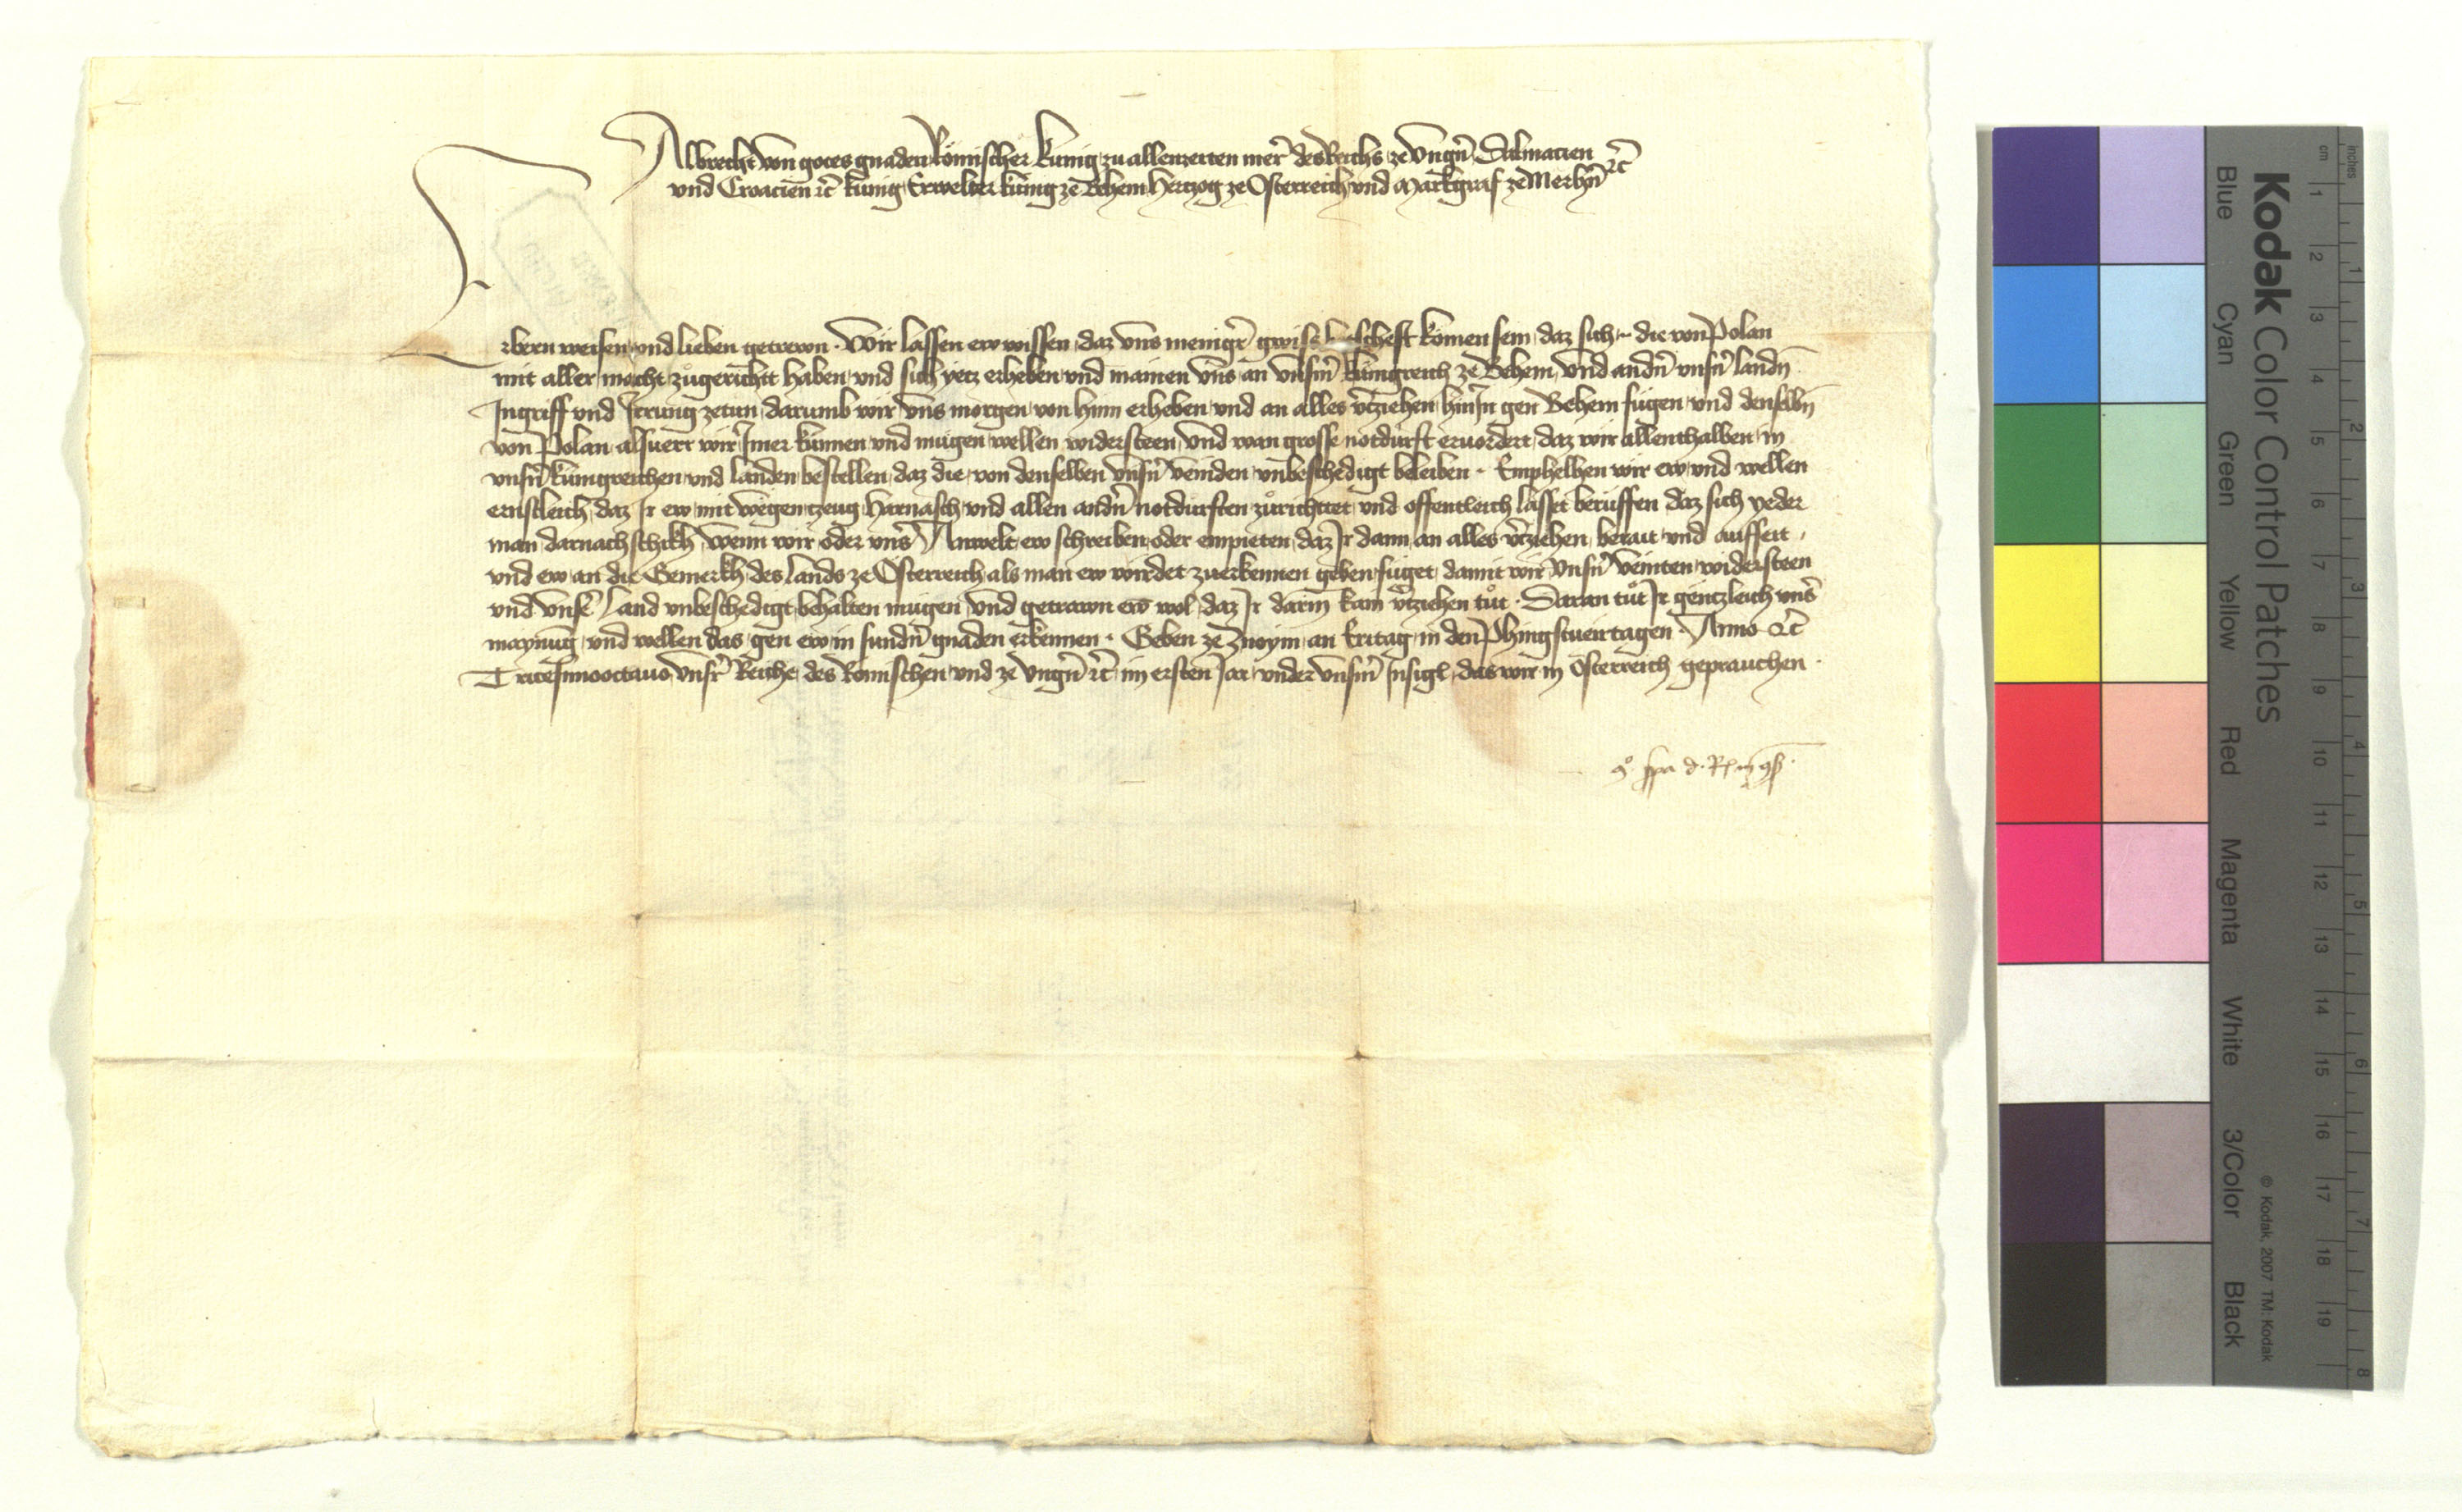 Albrecht von gotes gnaden Römischer kunig zu allenzeiten merer des Reichs ze Vngern Dalmacien
und Croacien etc kunig Erwelter kunig ze Behem Hertzog ze Österreich und Markgraf ze Merhern etc
Erbern weisen und lieben getrewn. Wir lassen ew wissen daz uns meniger gwiss botschefft komen sein, daz sich die von Polan
mit aller macht zugerichtt haben, und sich yetz erheben und mainen uns an unserm kunigreich ze Behem, und andern unsern landen
Ingriff und Irrung zetun, darumb wir uns morgen von hinn erheben und an alles verziehen hinIn gen Behem fügen, und denselben
von Polan alsuerr wir Imer künnen und mügen wellen widersteen, und wan grosse notdurft eruordert, daz wir allenthalben in
unsern kunigreichen und landen bestellen, daz die von denselben unsern veinden unbeschedigt beleiben. Emphelhen wir ew und wellen
ernstleich, daz Ir ew mit wegen, tzeug, Harnasch, und allen andern notdurften zurichttet und offentleich lasset berüffen daz sich yeder
man darnach schikh, Wenn wir oder unser Anwelt ew schreiben oder empieten, daz Ir dann an alles verziehen, berait und auf seit,
und ew an die Gemerkh des Lands ze Österreich als man ew wirdet zuerkennen geben, füget, damit wir unsern veinten widersteen
und unser Land unbeschedigt behalten mügen, und getrawn ew wol, daz Ir darin kain verziehen tut. Daran tut Ir gentzleich unser
maynung, und wellen das gen ew in sundern gnaden erkennen. Geben ze Znoym, an Eritag in den Phingstueirtagen. Anno etc
Tricesimooctauo, unser Reiche, des Römischen und ze Ungern etc im ersten Jar, under unserm Insigl, das wir in Österreich geprauchen.
Kodak Color Control Patches
Blue Cyan Green Yellow Red Magenta White 3/Color Black
© Kodak, 2007 TM: Kodak
cm 1 2 3 4 5 6 7 8 9 10 11 12 13 14 15 16 17 18 19
inches 1 2 3 4 5 6 7 8